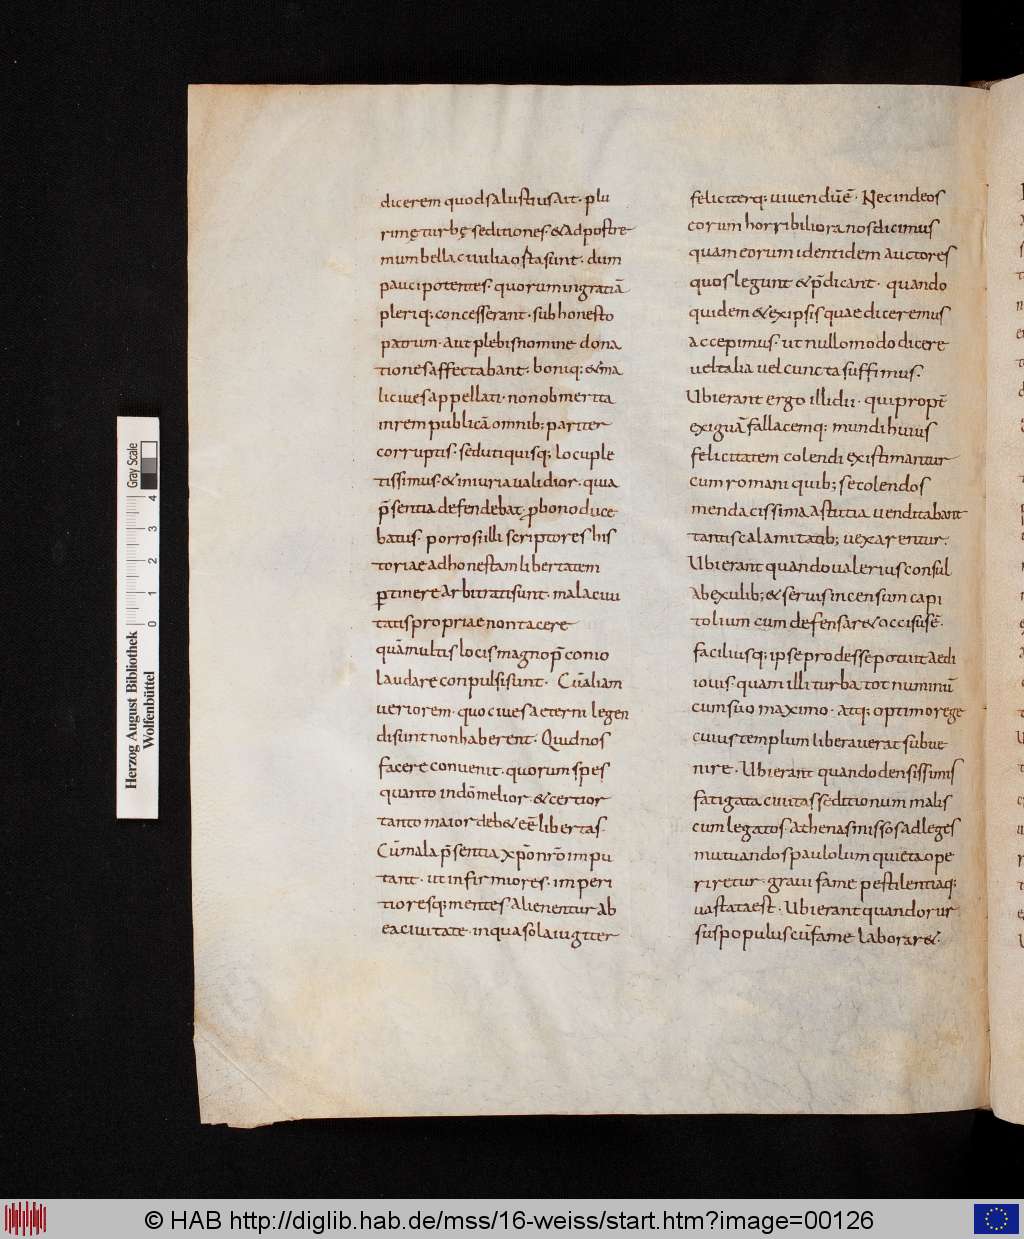 dicerem quod salustius ait · plu
rimę turbę seditiones · & ad postre
mum bella ciuilia orta sunt · dum
pauci potentes · quorum in gratiā
pleriq; concesserant · sub honesto
patrum · aut plebis nomine dona
tiones affectabant · boniq; & ma
li ciues appellati · non ob merita
in rem publicā omnib; pariter
corruptis · sed uti quisq; locuple
tissimus · & iniuria ualidior · quia
p̄sentia defendebat · p bono duce
batur · porro si illi scriptores his
toriae ad honestam libertatem
ptinere arbitrati sunt · mala ciui
tatis propriae non tacere
quā multis locis magno p̄conio
laudare conpulsi sunt · Cū aliam
ueriorem · quo ciues aeterni legen
di sunt non haberent · Quid nos
facere conuenit · quorum spes
quanto in dō melior · & certior
tanto maior deb& eē libertas ·
Cū mala p̄sentia xp̄o nr̄o impu
tant · ut infirmiores · imperi
tioresq; mentes alienentur ab
ea ciuitate · in qua sola iugiter
feliciterq; uiuendū ē · Nec in deos
eorum horribiliora nos dicimus
quam eorum identidem auctores
quos legunt & p̄dicant · quando
quidem & ex ipsis quae diceremus
accepimus · ut nullo modo dicere
uel talia uel cuncta suffimus ·
Ubi erant ergo illi dii · qui propt̄
exiguā fallacemq; mundi huius
felicitatem colendi existimantur
cum romani quib; se colendos
mendacissima astutia uenditabant
tantis calamitatib; uexarentur ·
Ubi erant quando ualerius consul
ab exulib; & seruis incensum capi
tolium cum defensar& occisus ē ·
faciliusq; ipse prodesse potuit aedi
iouis · quam illi turba tot numinū
cum suo maximo · atq; optimo rege
cuius templum liberauerat subue
nire · Ubi erant quando densissimis
fatigata ciuitas seditionum malis
cum legatos · athenas missos ad leges
mutuandos paulolum quieta ope
riretur · graui fame pestilentiaq;
uastata est · Ubi erant quando rur
sus populus cū fame laborar& ·
Herzog August Bibliothek
Wolfenbüttel
0 1 2 3 4
Gray Scale
© HAB http://diglib.hab.de/mss/16-weiss/start.htm?image=00126